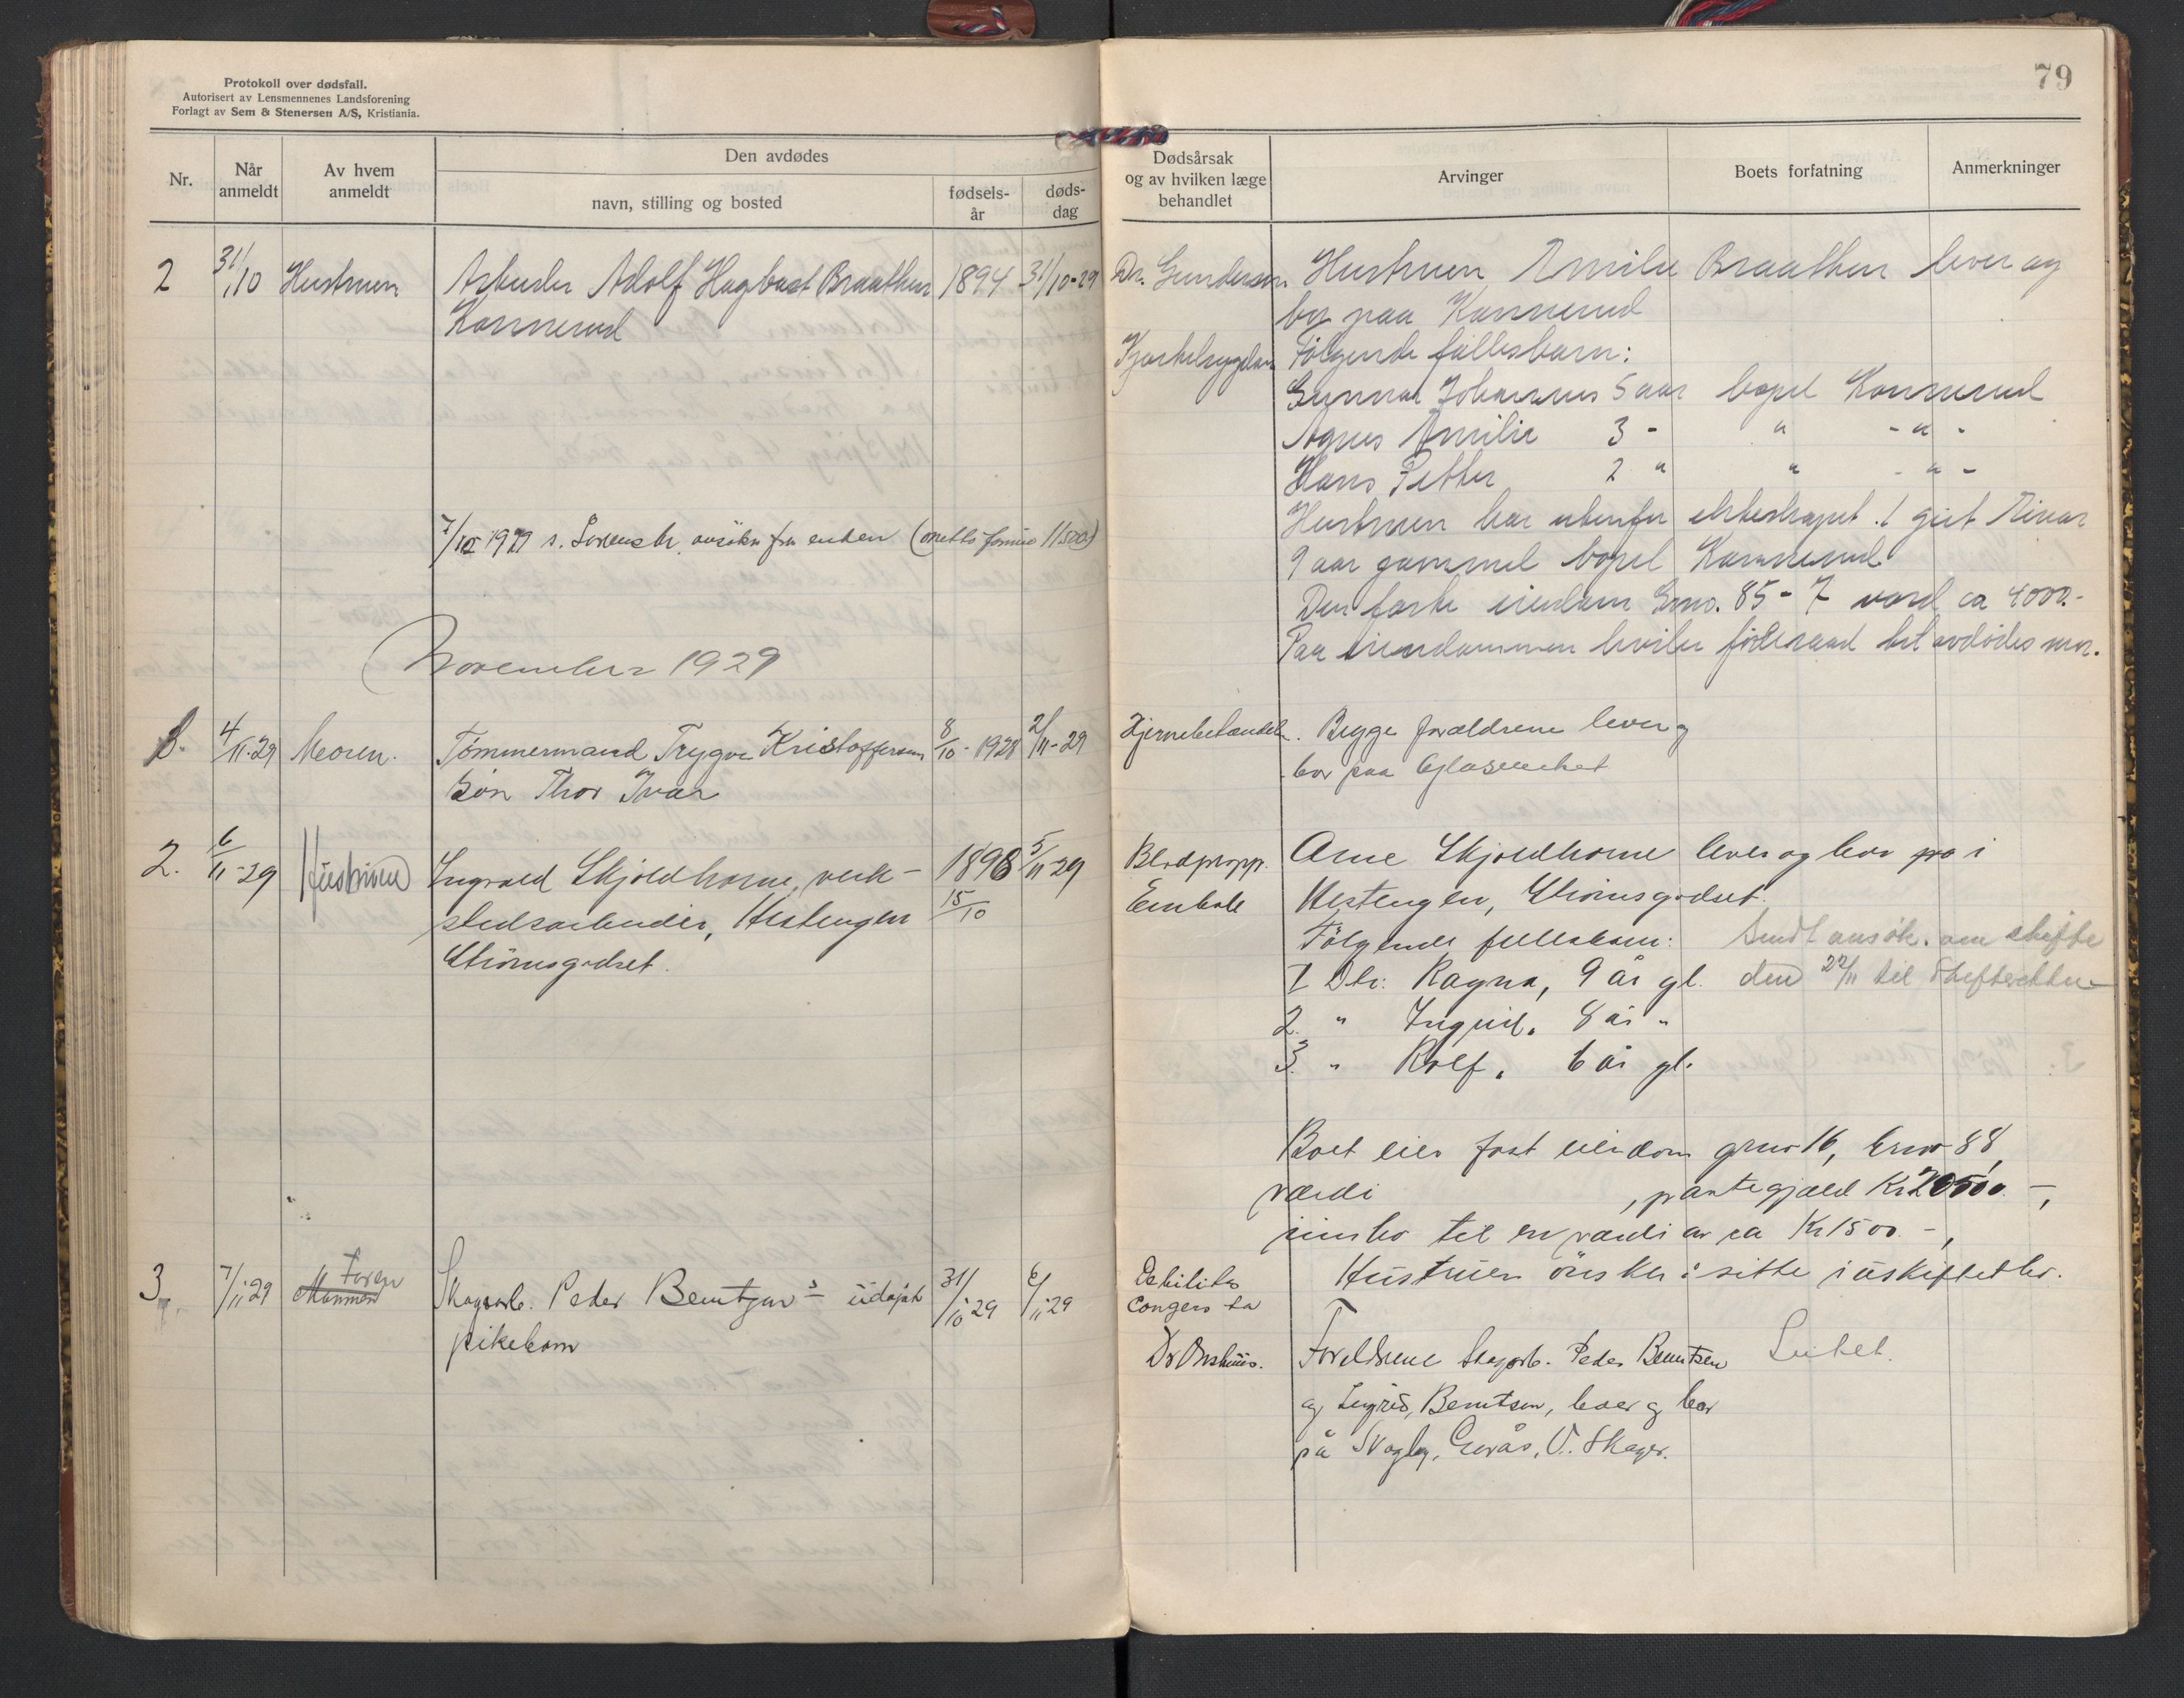 Protokoll over dødsfall.
Autorisert av Lensmennenes Landsforening
Forlagt av Sem & Stenersen A/S, Kristiania.
79
Nr.
Når anmeldt
Av hvem anmeldt
Den avdødes
navn, stilling og bosted
fødsels-år
døds-dag
Dødsårsak og av hvilken læge behandlet
Arvinger
Boets forfatning
Anmerkninger
2 31/10 Hustruen Arbeider Adolf Hagbart Braathen 1894 31/10-29
Konnerud
7/12 1929 s. Sorenskr. ansökn fra enken (netto formue 11500)
Dr. Gundersen
Hjertelsygdom
Hustruen Emilie Braathen lever og
bor paa Konnerud
Følgende fællesbarn:
Gunnar Johannes 5 aar bopel Konnerud
Agnes Emilie 3 - " - " -
Hans Petter 2 " " - " -
Hustruen har utenfor ekteskapet 1 gut Einar
9 aar gammel bopel Konnerud
Den faste eiendom Gno. 85 - 7 værd ca 4000.-
Paa eiendommen hviler föderaad til avdödes mor.
November 1929
1. 4/11-29 Moren. Tømmermand Trygve Kristoffersen 8/10-1928 2/11-29
Sön Thor Ivar
Hjernebetændelse. Begge forældrene lever og
bor paa Glasverket
2. 6/11-29 Hustruen Ingvald Skjoldhorne, verk- 1898 5/11-29
stedsarbeider, Hestengen 15/10
Strömsgodset.
Blodpropp.
Embole
Arne Skjoldhorne lever og bor på i
Hestengen, Strömsgodset.
Fölgende fellesbarn: Sendt ansök. om skifte
1 Dtr: Ragna, 9 år gl. den 22/11 til Skifteretten
2. " Ingrid, 8 år "
3. " Rolf, 6 år gl.
Boet eier fast eiendom gnr 16, bnr 88,
værdi , pantegjæld Kr 20500.-,
innbo til en værdi av ca Kr 1500.-,
Hustruen önsker å sitte i uskiftet bo.
3. 7/11 29 Mannen Faren Skogsarb. Peder Berntzens udöpt 31/10 29 6/11 29
pikebarn
Debilitas
congenita
Dr Onshuus.
Foreldrene Skogsarb. Peder Berntsen Intet.
og Ingrid Berntsen, lever og bor
på Skogly, V. Skoger.